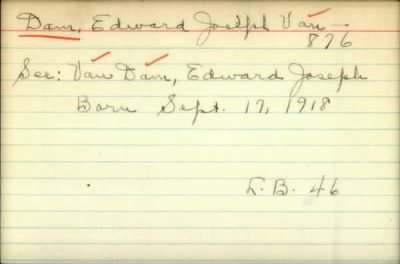 Dam, Edward Joseph Van —
876
See: Van Dam, Edward Joseph
Born Sept. 17, 1918
L. B. 46